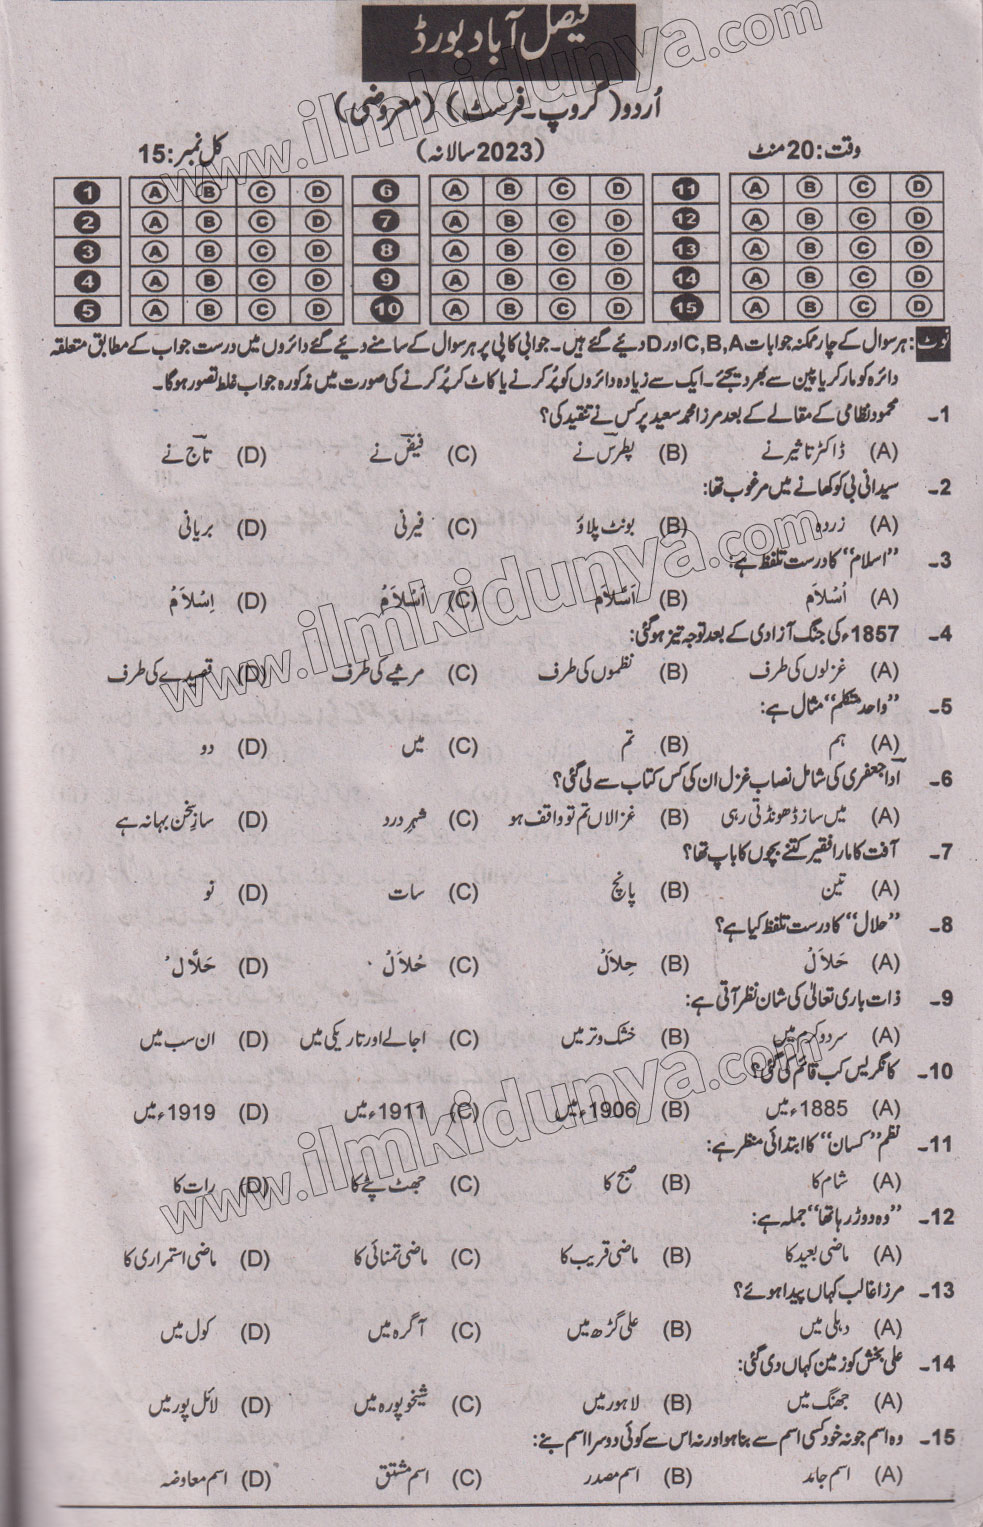 فیصل آباد بورڈ
اُردو (گروپ۔فرسٹ) (معروضی)
وقت: 20 منٹ (2023 سالانہ) کل نمبر: 15
1 A B C D 6 A B C D 11 A B C D
2 A B C D 7 A B C D 12 A B C D
3 A B C D 8 A B C D 13 A B C D
4 A B C D 9 A B C D 14 A B C D
5 A B C D 10 A B C D 15 A B C D
نوٹ: ہر سوال کے چار ممکنہ جوابات C,B,A اور D دیئے گئے ہیں۔ جوابی کاپی پر ہر سوال کے سامنے دیئے گئے دائروں میں درست جواب کے مطابق متعلقہ
دائرہ کو مارکر یا پین سے بھر دیجئے۔ ایک سے زیادہ دائروں کو پُر کرنے یا کاٹ کر پُر کرنے کی صورت میں مذکورہ جواب غلط تصور ہوگا۔
1۔ محمود نظامی کے مقالے کے بعد مرزا محمد سعید پر کس نے تنقید کی؟
(A) ڈاکٹر تاثیر نے (B) پطرس نے (C) فیض نے (D) تاج نے
2۔ سیدانی بی کو کھانے میں مرغوب تھا:
(A) زردہ (B) بونٹ پلاؤ (C) فیرنی (D) بریانی
3۔ ”اسلام“ کا درست تلفظ ہے:
(A) اُسْلَام (B) اَسْلَام (C) اَسْلَامُ (D) اِسْلَامُ
4۔ 1857ء کی جنگ آزادی کے بعد توجہ تیز ہو گئی:
(A) غزلوں کی طرف (B) نظموں کی طرف (C) مرثیے کی طرف (D) قصیدے کی طرف
5۔ ”واحد متکلم“ مثال ہے:
(A) ہم (B) تم (C) میں (D) دو
6۔ اداؔ جعفری کی شامل نصاب غزل ان کی کس کتاب سے لی گئی؟
(A) میں ساز ڈھونڈتی رہی (B) غزالاں تم تو واقف ہو (C) شہرِ درد (D) سازِ سخن بہانہ ہے
7۔ آفت کا مارا فقیر کتنے بچوں کا باپ تھا؟
(A) تین (B) پانچ (C) سات (D) نو
8۔ ”حلال“ کا درست تلفظ کیا ہے؟
(A) حَلَالُ (B) حِلَالُ (C) حُلَالُ (D) حَلَّالُ
9۔ ذات باری تعالیٰ کی شان نظر آتی ہے:
(A) سرد و گرم میں (B) خشک و تر میں (C) اجالے اور تاریکی میں (D) ان سب میں
10۔ کانگریس کب قائم کی گئی؟
(A) 1885ء میں (B) 1906ء میں (C) 1911ء میں (D) 1919ء میں
11۔ نظم ”کسان“ کا ابتدائی منظر ہے:
(A) شام کا (B) صبح کا (C) جھٹ پٹے کا (D) رات کا
12۔ ”وہ دوڑ رہا تھا“ جملہ ہے:
(A) ماضی بعید کا (B) ماضی قریب کا (C) ماضی تمنائی کا (D) ماضی استمراری کا
13۔ مرزا غالب کہاں پیدا ہوئے؟
(A) دہلی میں (B) علی گڑھ میں (C) آگرہ میں (D) کول میں
14۔ علی بخش کو زمین کہاں دی گئی:
(A) جھنگ میں (B) لاہور میں (C) شیخوپورہ میں (D) لائل پور میں
15۔ وہ اسم جو نہ خود کسی اسم سے بنا ہو اور نہ اس سے کوئی دوسرا اسم بنے:
(A) اسم جامد (B) اسم مصدر (C) اسم مشتق (D) اسم معاوضہ
www.ilmkidunya.com
www.ilmkidunya.com
www.ilmkidunya.com